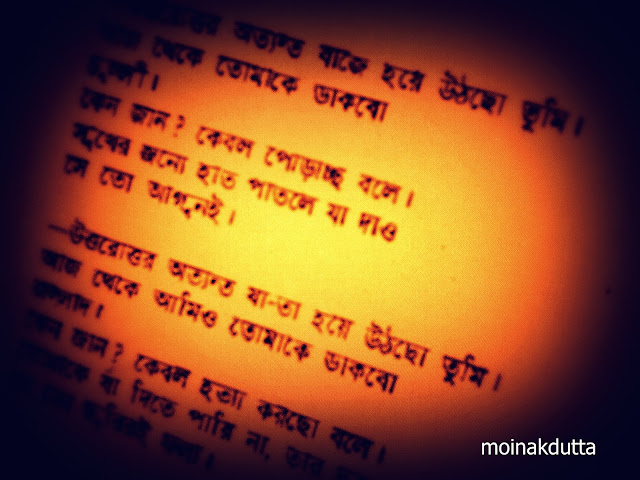 অত্যন্ত বাজে হয়ে উঠছো তুমি।
থেকে তোমাকে ডাকবো
চুল্লী।
কেন জান? কেবল পোড়াচ্ছ বলে।
সুখের জন্যে হাত পাতলে যা দাও
সে তো আগুনই।
—উত্তরোত্তর অত্যন্ত যা-তা হয়ে উঠছো তুমি।
আজ থেকে আমিও তোমাকে ডাকবো
জল্লাদ।
কেন জান? কেবল হত্যা করছো বলে।
যা দিতে পারি না, তার
ছুরিরই ফলা।
moinakdutta